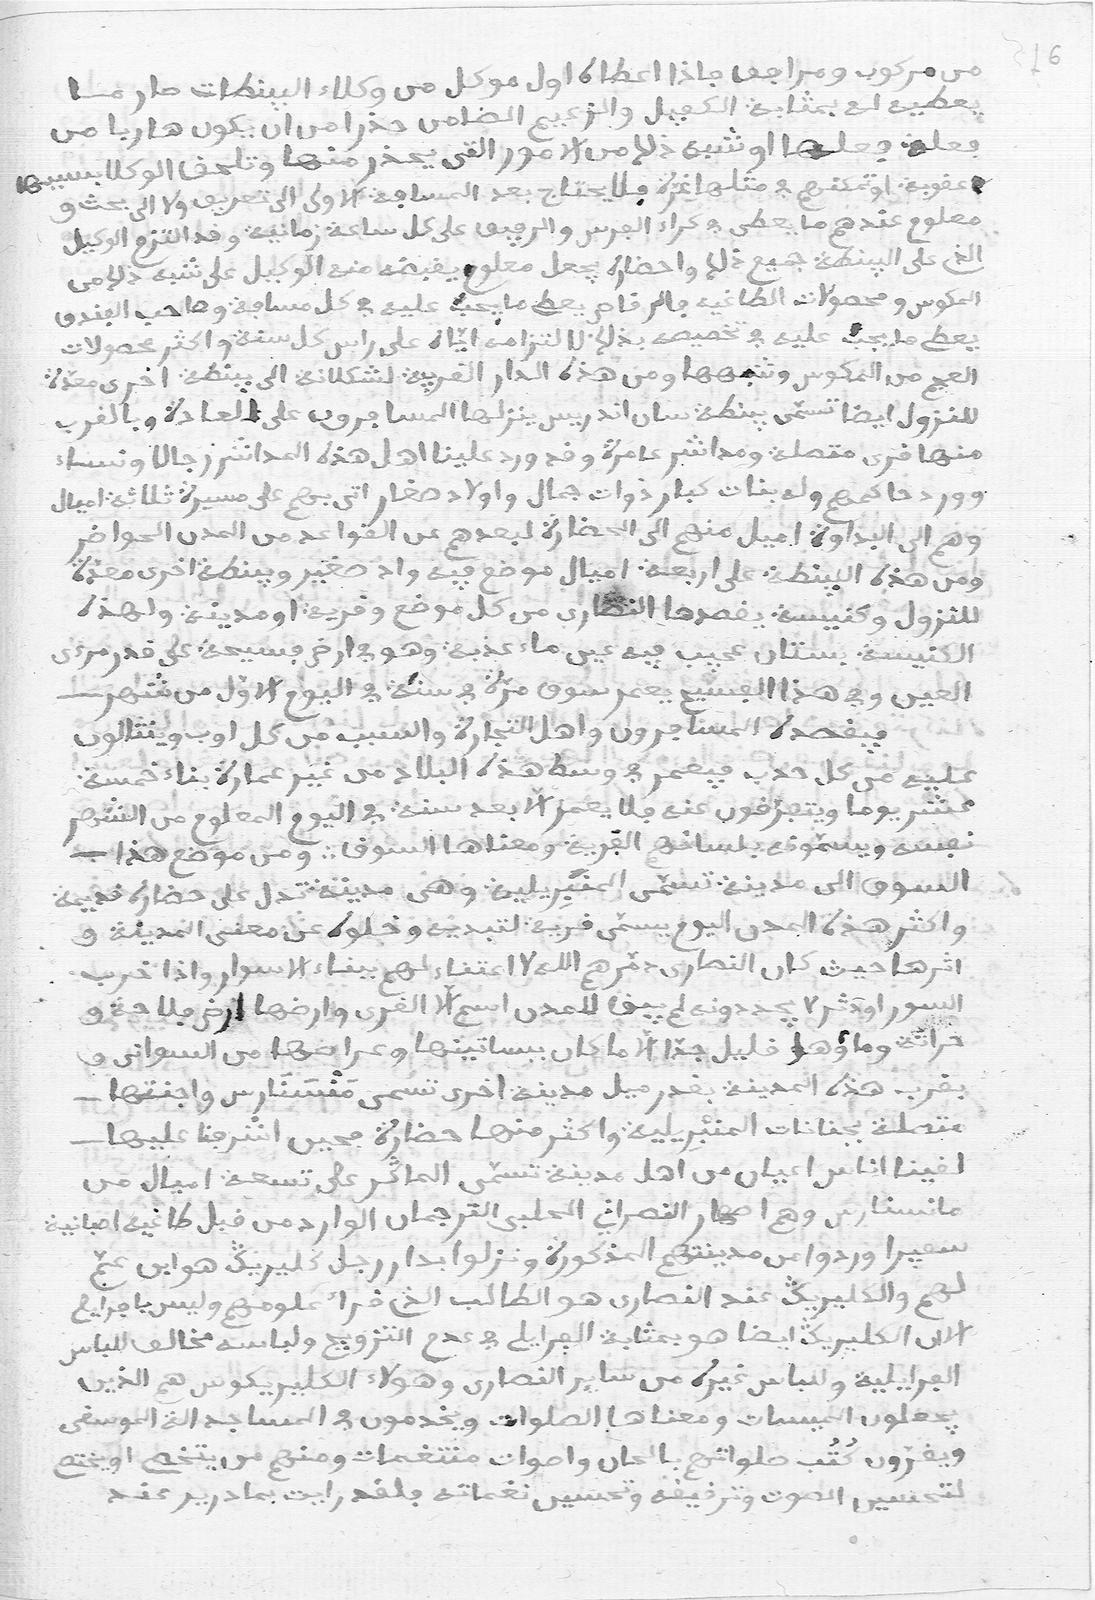 من مركوب ومرافق فاذا اعطاه اول موكل من وكلاء البينطات صار مسا
يعطيه له بمثابة الكفيل والزعيم الضامن حذرا من ان يكون هاربا من
فعلة فعلها او شبه ذلك من الامور التى يحذر منها وتلحق الوكلا بسببها
عقوبة او تمكنهم في مثلها غيره فلا يحتاج بعد المسافة الاولى الى تعريف ولا الى بحث و
معلوم عندهم ما يعطى في كراء الفرس والرفيق على كل ساعة زمانية وقد التزم الوكيل
الذى على البينطة جميع ذلك واحضاره بجعل معلوم يقبضه منه الوكيل على شبه ذلك من
المكوس ومحصولات الطاغية فالرقاص يعطى ما يجب عليه في كل مسافة وصاحب الفندق
يعطى ما يجب عليه في تخصيصه بذلك لالتزامه اياه على راس كل سنة واكثر محصولات
العجم من المكوس وشبهها ومن هذه الدار القريبة لشكلانة الى بينطة اخرى معدة
للنزول ايضا تسمى بينطة سان اندريس ينزلها المسافرون على العادة وبالقرب
منها قرى متصلة ومداشر عامرة وقد ورد علينا اهل هذه المداشر رجالا ونساء
وورد حاكمهم وله بنات كبار ذوات جمال واولاد صغار اتى بهم على مسيرة ثلاثة اميال
وهم الى البداوة اميل منهم الى الحضارة لبعدهم عن القواعد من المدن الحواضر
ومن هذه البينطة على اربعة اميال موضع فيه واد صغير وبينطة اخرى معدة
للنزول وكنيسة يقصدها النصارى من كل موضع وقرية او مدينة ولهذه
الكنيسة بستان عجيب فيه عين ماء عذبة وهو في ارض فسيحة على قدر مرءى
العين وفي هذا الفسيح يعمر سوق مرة في سنة في اليوم الاول من شهر
فيقصده المسافرون واهل التجارة والسبب من كل اوب وينثالون
عليه من كل حدب فيعمر في وسط هذه البلاد من غير عمارة بناء خمسة
عشر يوما ويتفرقون عنه فلا يعمر الا بعد سنة في اليوم المعلوم من الشهر
نفسه ويسمونه بلسانهم الفرية ومعناها السوق ومن موضع هذا
السوق الى مدينة تسمى المنبريلية وهى مدينة تدل على حضارة قديمة
واكثر هذه المدن اليوم يسمى قرية لتبديه وخلوه عن معنى المدينة و
اثرها حيث كان النصارى دمرهم الله لا اعتناء لهم ببناء الاسوار واذا خرب
السور او دثر لا يجددونه لم يبق للمدن اسم الا القرى وارضها ارض فلاحة و
حراثة وماؤها قليل جدا الا ما كان ببساتينها وعراصها من السوانى و
بقرب هذه المدينة بقدر ميل مدينة اخرى تسمى منسنارس واجنتها
متصلة بجنانات المنبريلية واكثر منها حضارة فحين اشرفنا عليها
لقينا اناس اعيان من اهل مدينة تسمى الماكر على تسعة اميال من
مانسنارس وهم اصهار النصرانى الحلبى الترجمان الوارد من قبل طاغية اصبانية
سفيرا وردوا من مدينتهم المذكورة ونزلوا بدار رجل كليريك هو ابن عم
لهم والكليريك عند النصارى هو الطالب الذى قرأ علومهم وليس بافرايلى
الان الكليريك ايضا هو بمثابة الفرايلى في عدم التزويج ولباسه مخالف للباس
الفرايلية ولباس غيره من ساير النصارى وهولاء الكليريكوس هم الذين
يجعلون الميسات ومعناها الصلوات ويخدمون في المساجد الة الموسقى
ويقرون كتب صلواتهم بالحان واصوات منتغمات ومنهم من يتخصى او يختصى
لتحسين الصوت وترقيقه وتحسين نغماته فلقد رايت بمادريد عند